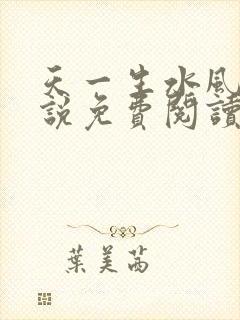 天一生水風
說免費閱讀
葉美茜